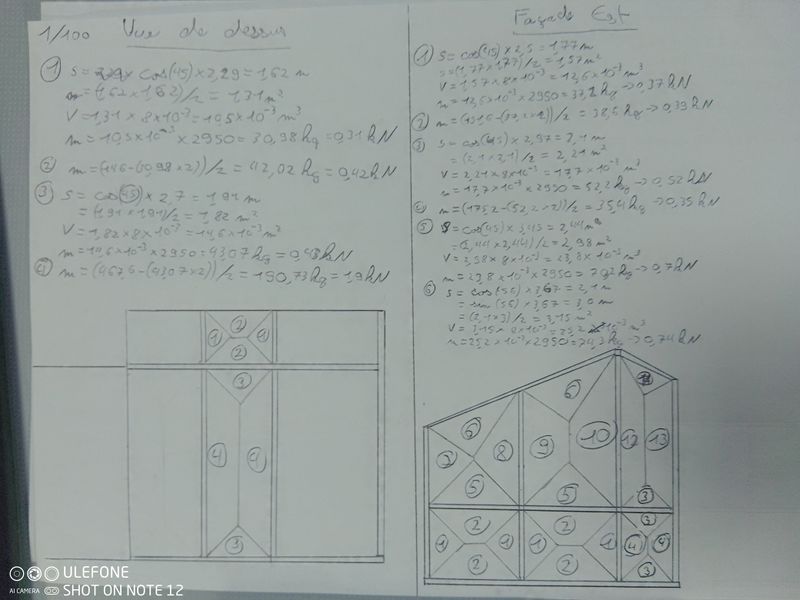 1/100 Vue de dessus
① S = cos(45) × 2,29 = 1,62 m
= (1,62 × 1,62)/2 = 1,31 m²
V = 1,31 × 8×10⁻³ = 10,5×10⁻³ m³
m = 10,5×10⁻³ × 2950 = 30,98 kg = 0,31 kN
② m = (146-(30,98×2))/2 = 42,02 kg = 0,42 kN
③ S = cos(45) × 2,7 = 1,91 m
= (1,91×1,91)/2 = 1,82 m²
V = 1,82 × 8×10⁻³ = 14,6×10⁻³ m³
m = 14,6×10⁻³ × 2950 = 43,07 kg = 0,43 kN
④ m = (467,6-(43,07×2))/2 = 190,73 kg = 1,9 kN
② 
① ①
②
③
④ ④
③
Façade Est
① S = cos(45) × 2,5 = 1,77 m
S = (1,77×1,77)/2 = 1,57 m²
V = 1,57×8×10⁻³ = 12,6×10⁻³ m³
m = 12,6×10⁻³ × 2950 = 37,2 kg → 0,37 kN
② m = (151,6-(37,2×2))/2 = 38,6 kg → 0,39 kN
③ S = cos(45) × 2,97 = 2,1 m
= (2,1×2,1)/2 = 2,21 m²
V = 2,21×8×10⁻³ = 17,7×10⁻³ m³
m = 17,7×10⁻³ × 2950 = 52,2 kg → 0,52 kN
④ m = (175,2-(52,2×2))/2 = 35,4 kg → 0,35 kN
⑤ S = cos(45) × 3,45 = 2,44 m
= (2,44×2,44)/2 = 2,98 m²
V = 2,98×8×10⁻³ = 23,8×10⁻³ m³
m = 23,8×10⁻³ × 2950 = 70,2 kg → 0,7 kN
⑥ S = cos(55) × 3,67 = 2,1 m
= sin(55) × 3,67 = 3,0 m
= (2,1×3)/2 = 3,15 m²
V = 3,15×8×10⁻³ = 25,2×10⁻³ m³
m = 25,2×10⁻³ × 2950 = 74,3 kg → 0,74 kN
⑥ ⑥
⑦ ⑧ ⑨ ⑩ ⑫ ⑬
⑤ ⑤ ③
② ② ③
① ① ① ① ④ ④
② ② ③
ULEFONE
AI CAMERA SHOT ON NOTE 12